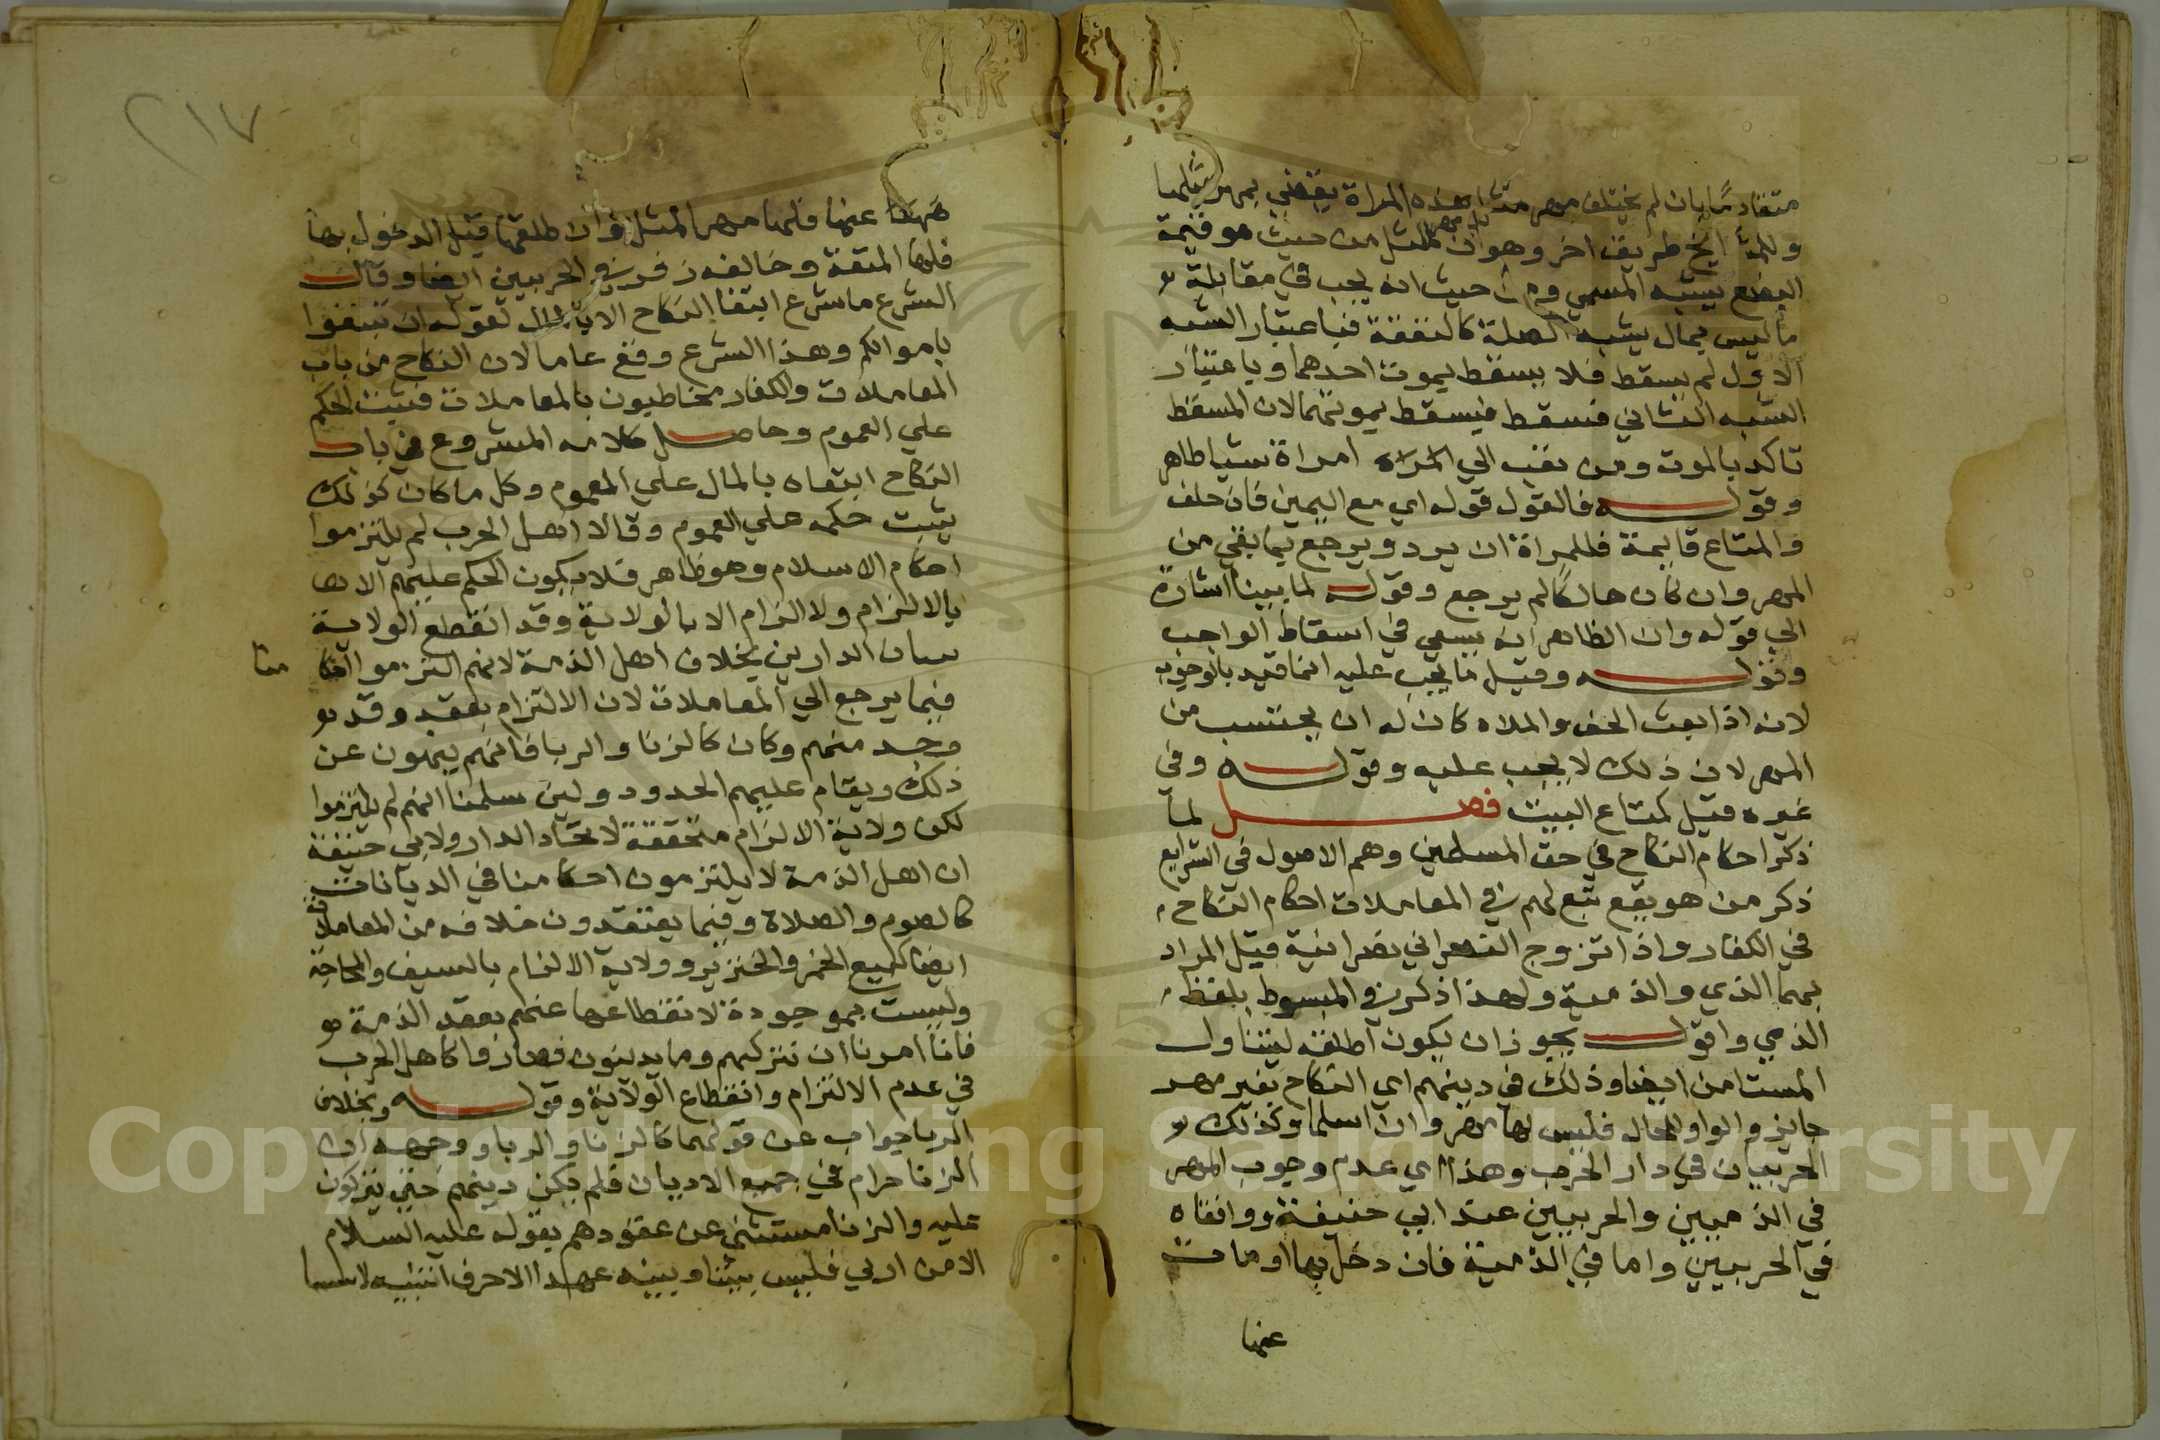 متقادما بان لم يختلف مهر مثل هذه المراة يقضي بمهر مثلها
طريق اخر وهو ان مهر المثل من حيث هو قيمة
البضع يشبه المسمي ومن حيث انه يجب في مقابلة
ما ليس بمال يشبه الصلة كالنفقة فباعتبار الشبه
الاول لم يسقط فلا يسقط بموت احدهما وباعتبار
الشبه الثاني فسقط فيسقط بموتهما لان المسقط
تاكد بالموت ومن بعث الي امراة شيا ظاهر
وقوله فالقول قوله اي مع اليمين فان حلف
والمتاع قايمة فللمراة ان يرد ويرجع بما بقي من
المهر وان كان هالكا لم يرجع وقوله لما بينا اشارة
الي قوله وان الظاهر انه يسعي في اسقاط الواجب
وقوله وقيل ما يجب عليه انما قيد بالوجوب
لانه اذا بعث الخف والملاه كان له ان يحتسب من
المهر لان ذلك لا يجب عليه وقوله وفي
غيره قيل كمتاع البيت فصل لما
ذكر احكام النكاح في حق المسلمين وهم الاصول في الشرايع
ذكر من هو يقع تبع لهم في المعاملات احكام النكاح
في الكفار واذا تزوج النصراني نصرانية قيل المراد
بهما الذي والذمية ولهذا ذكر في المبسوط بلفظ
الذمي واقول يجوز ان يكون اطلقه ليتناول
المستامن ايضا وذلك في دينهم اي النكاح بغير مهر
جايز والواو للحال فليس لها مهر وان اسلما وكذلك
الحربيان في دار الحرب وهذا اي عدم وجوب المهر
في الذميين والحربيين عند ابي حنيفة ووافقاه
في الحربيين واما في الذمية فان دخل بها او مات
عنها
٢١٧
عنها فلها مهر المثل وان طلقها قبل الدخول بها
فلها المتعة وخالفه زفر في الحربيين ايضا وقال
الشرع ما شرع ابتغا النكاح الا بالمال لقوله ان تبتغوا
باموالكم وهذا الشرع وقع عاما لان النكاح من باب
المعاملات والكفار مخاطبون بالمعاملات فيثبت الحكم
علي العموم وحاصل كلامه المشروع في باب
النكاح ابتغاه بالمال علي العموم وكل ما كان كذلك
يثبت حكمه علي العموم وقالا اهل الحرب لم يلتزموا
احكام الاسلام وهو ظاهر فلا يكون الحكم عليهم الا
بالالزام ولا الزام الا بالولاية وقد انقطع الولاية
الدارين بخلاف اهل الذمة لانهم التزموا احكامنا
فيما يرجع الي المعاملات لان الالتزام بعقد وقد
وجد منهم وكان كالزنا والربا فانهم ينهون عن
ذلك ويقام عليهم الحدود ولين سلمنا انهم لم يلتزموا
لكن ولاية الالزام متحققة لاتحاد الدار ولابي حنيفة
ان اهل الذمة لا يلتزمون احكامنا في الديانات
كالصوم والصلاة وفيما يعتقدون خلافه من المعاملات
ايضا كبيع الخمر والخنزير وولاية الالزام بالسيف والمحاجة
وليست بموجودة لانقطاعها عنهم بعقد الذمة
فانا امرنا ان نتركهم وما يدينون فصاروا كاهل الحرب
في عدم الالتزام وانقطاع الولاية وقوله وبخلاف
الربا جواب عن قولهما كالزنا والربا ووجهه ان
الزنا حرام في جميع الاديان فلم يكن دينهم حتي يتركون
عليه والربا مستثني عن عقودهم بقوله عليه السلام
الا من اربي فليس بيننا وبينه عهد الا حرف